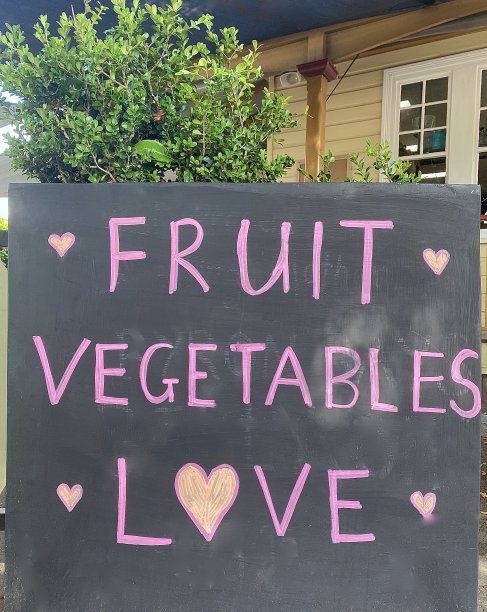 FRUIT
VEGETABLES
L♥VE